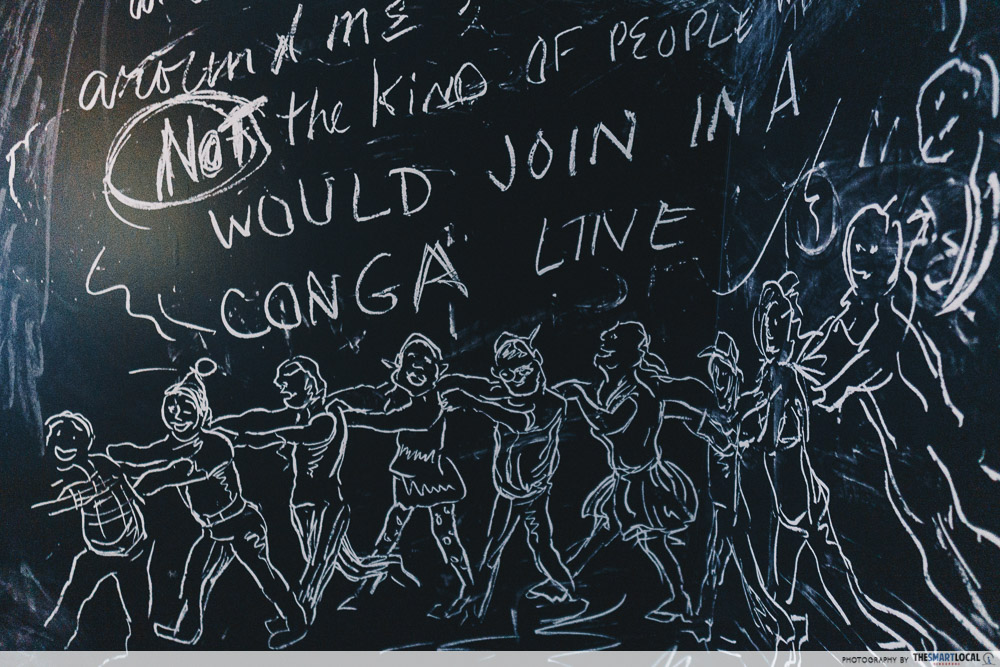 around me
NOT the kind OF PEOPLE
WOULD JOIN IN A
CONGA LINE
PHOTOGRAPHY BY THESMARTLOCAL